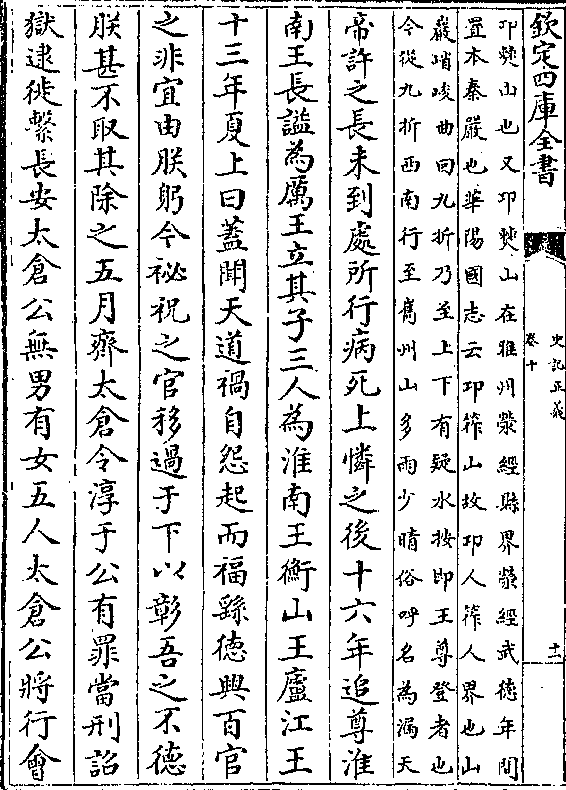 欽定四庫全書
史記正義
卷十
十一
邛僰山也又邛僰山在雅州滎經縣界滎經武德年間
置本秦嚴也華陽國志云邛筰山故邛人筰人界也山
巖峭峻曲回九折乃至上下有凝水按即王尊登者也
今從九折西南行至巂州山多雨少晴俗呼名為漏天
帝許之長未到處所行病死上憐之後十六年追尊淮
南王長謚為厲王立其子三人為淮南王衡山王廬江王
十三年夏上曰蓋聞天道禍自怨起而福繇德興百官
之非宜由朕躬今祕祝之官移過于下以彰吾之不德
朕甚不取其除之五月齊太倉令淳于公有罪當刑詔
獄逮徙繫長安太倉公無男有女五人太倉公將行會